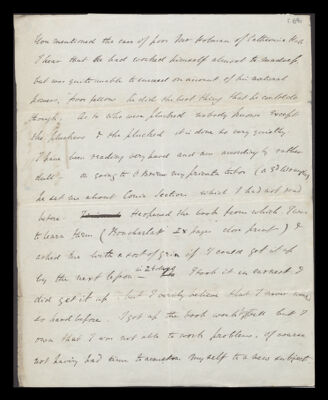 You mentioned the case of poor Mr Holman of Catherine Hall
I hear that he had worked himself almost to madness
but was quite unable to succeed on account of his natural
powers, Poor fellow he did the best thing that he could do
though. As to who were plucked nobody knows except
the pluckers & the plucked it is done so very quietly
I have been reading very hard and am accordingly rather
dull. On going to my private tutor (a 3d Wrangler)
he set me about Conic Sections which I had not read
before. He opened the book from which I was
to learn them (Boucharlat 2x pages close print) &
asked me with a sort of grin if I could get it up
by the next lesson in 2 days I took it in earnest &
did get it up but I verily believe that I never worked
so hard before. I got up the book work but I
own that I was not able to work problems, of course
not having had time to accustom myself to a new subject